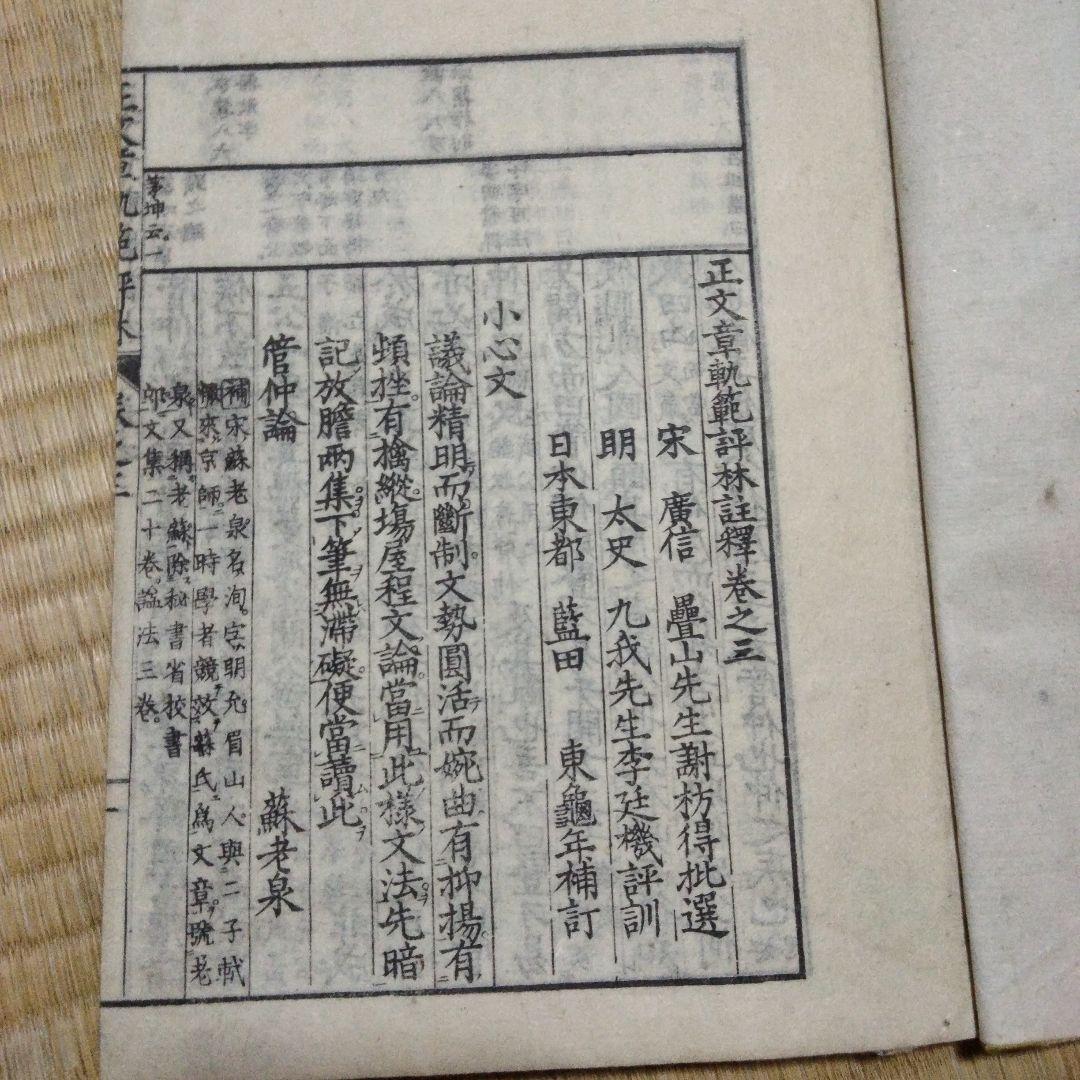 正文章軌範評林註釋卷之三
宋 廣信 疊山先生謝枋得批選
明 太史 九我先生李廷機評訓
日本東都 藍田 東龜年補訂
小心文
議論精明而斷制文勢圓活而婉曲有抑揚有
頓挫有擒縱塲屋程文論當用此樣文法先暗
記放膽兩集下筆無滯礙便當讀此
管仲論 蘇老泉
補宋蘇老泉名洵字明允眉山人與二子軾
轍來京師一時學者競效蘇氏爲文章號老
泉又稱老蘇除秘書省校書
郎文集二十卷謚法三卷
茅坤云一
正文章軌範評林 卷之三 一